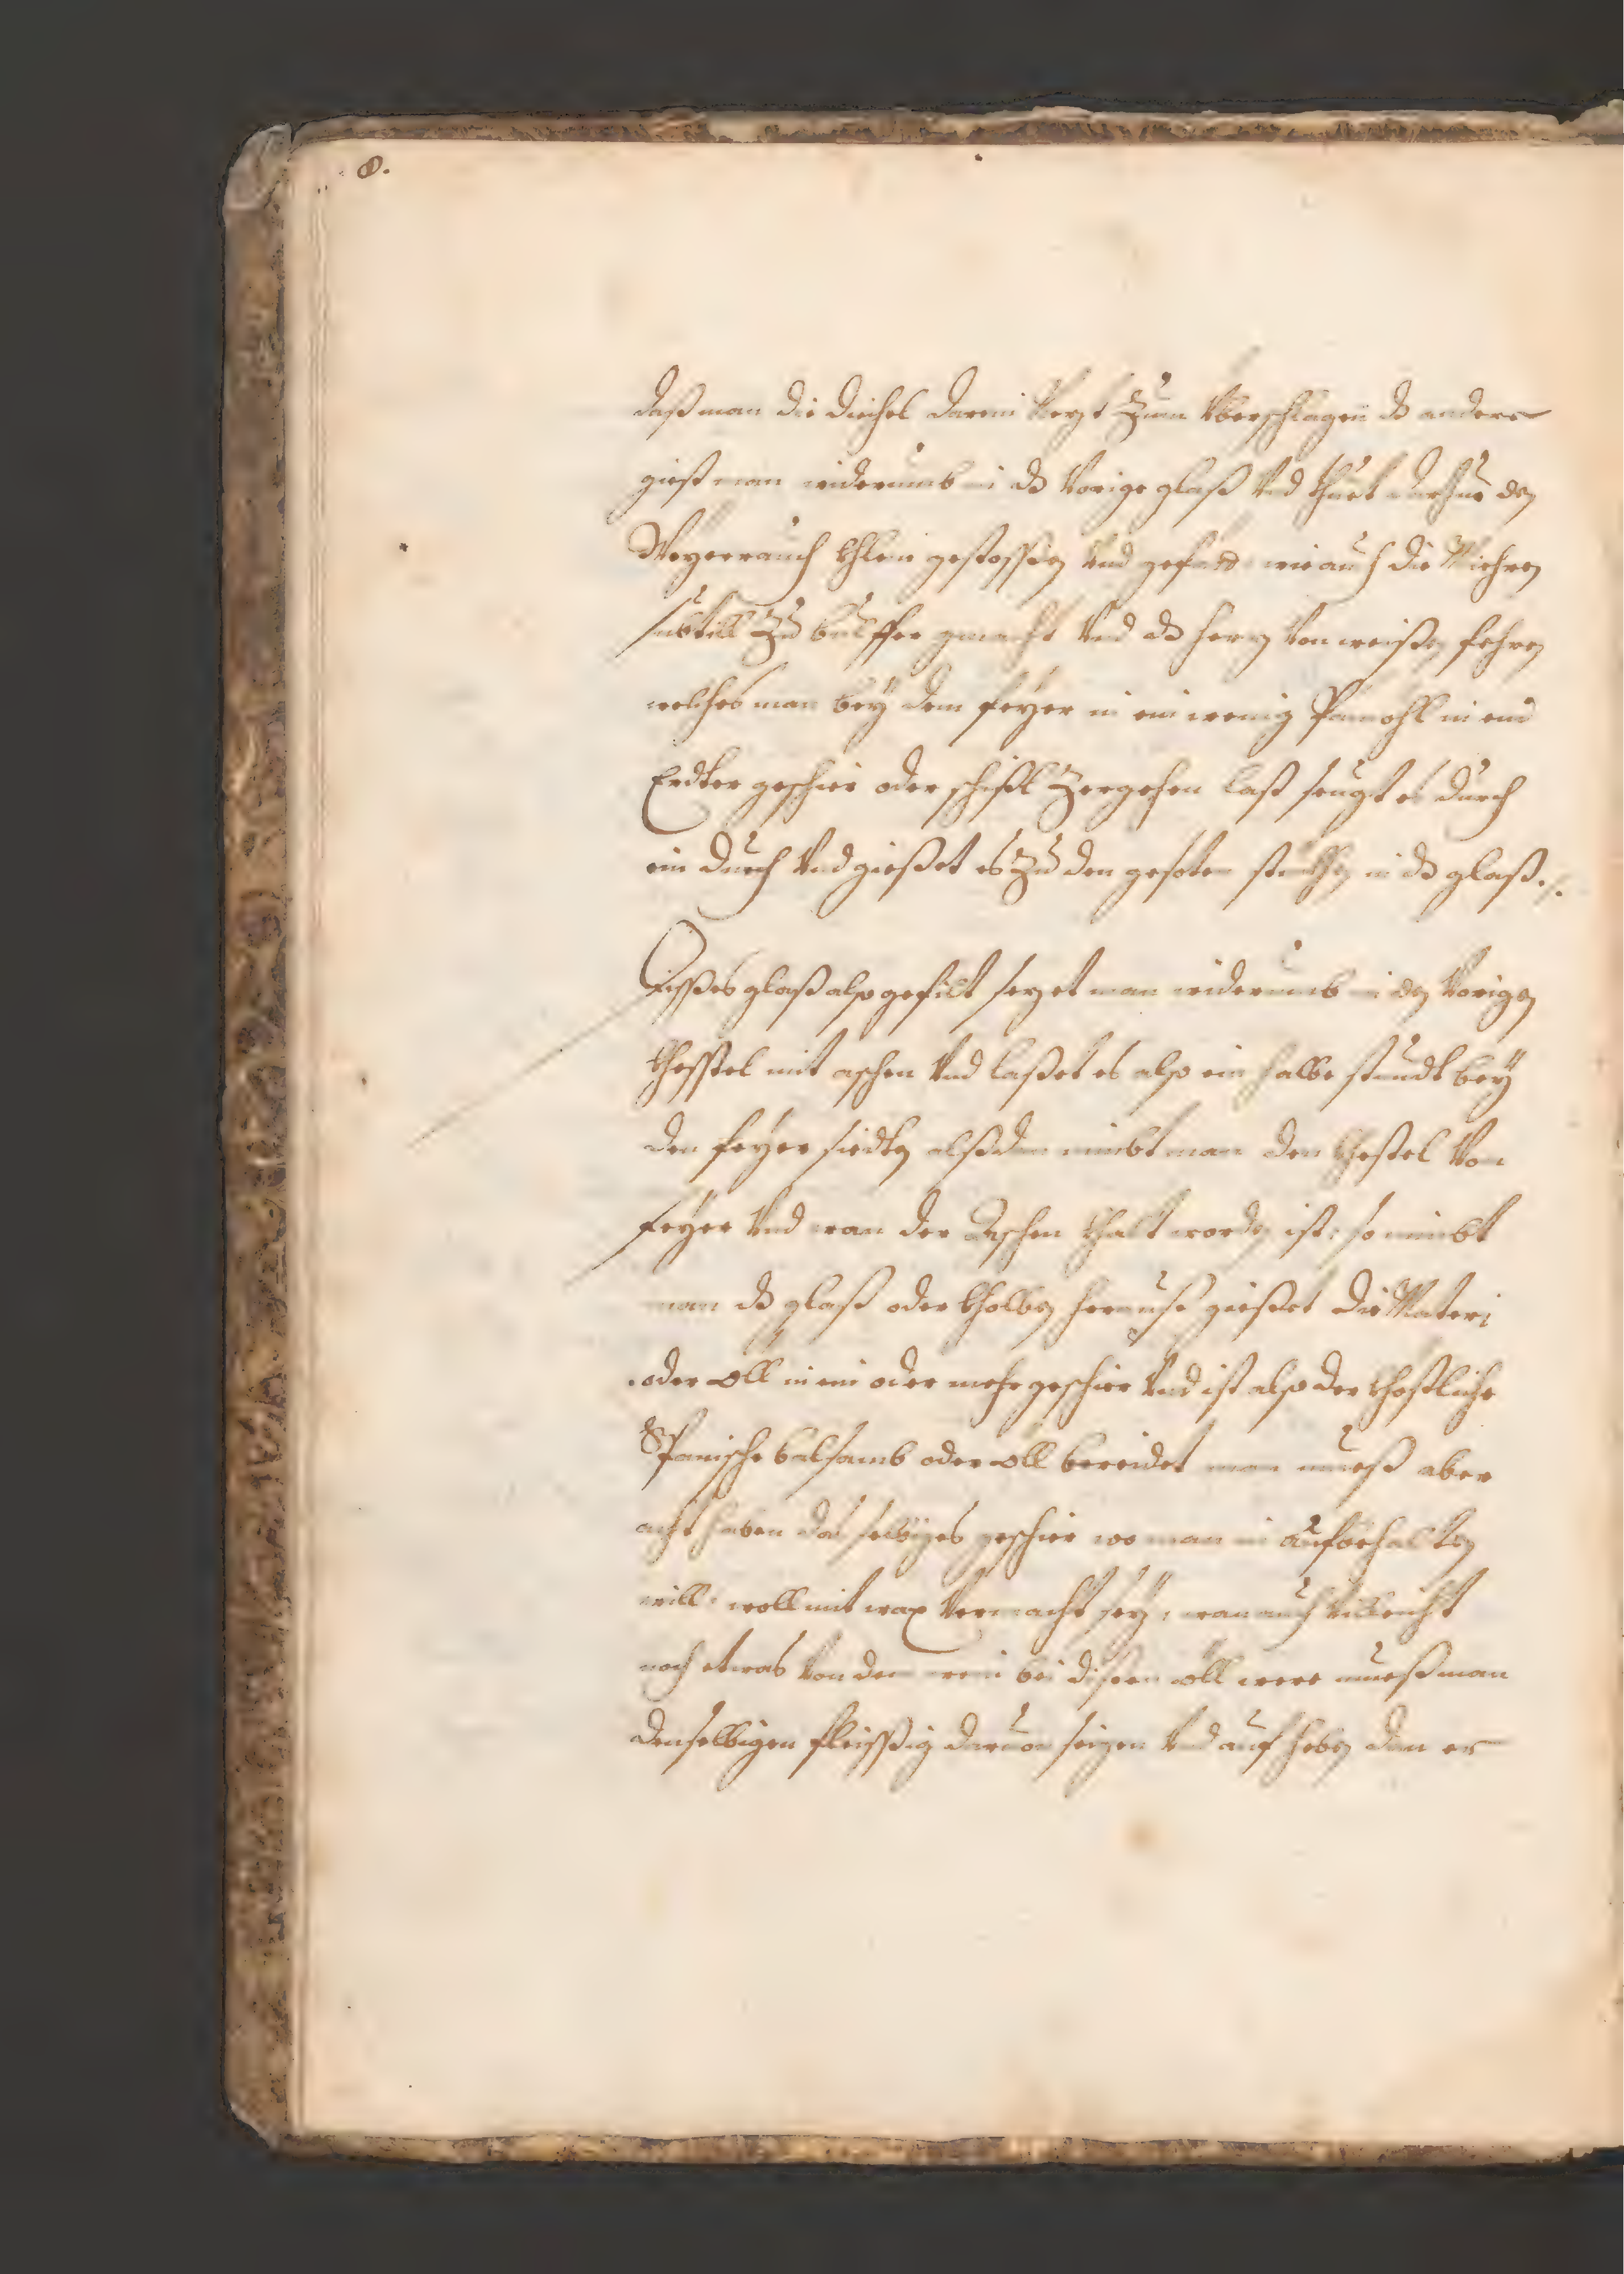 8.
daß man die diechel darein Nezt zum Vberschlagen dz andere
giest man widerumb in dz Vorige glaß Vnd thuet darein den
Weyerrauch khlein gestossen Vnd gefäet wie auch die Miehren
subtill zu bulffer gemacht Vnd dz harz Von weißen fehren
welches man bey dem feyer in ein wenig Pamohl in eim
Erdter geschier oder schißl zergehen last seugt es durch
ein duech Vnd gießet es zu den gesoten stukhen in dz glaß ./.
Disßes glaß also gefilt sezet man widerumb in den Vorigen
khessel mit aschen Vnd laßet es also ein halbe stundt bey
den feyer siedten alßdan nimbt man den khessel Von
feyer Vnd wan der Aschen khalt worden ist: so nimbt
man dz glaß oder kholben herauß gießet die Materi
oder öll in ein oder mehr geschier Vnd ist also der khostliche
Spanische balsamb oder öll bereidet man mueß aber
acht haben das selbiges geschier wo man in aufbehalten
will: woll mit wax Vermacht sey: wan auch Villeicht
noch etwas Von dem wein bei dißem öll were mueß man
denselbigen fleisßig daruon seigen Vnd auf heben dan er